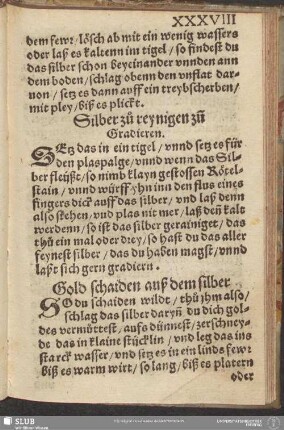 XXXVIII
dem fewr/ lösch ab mit ein wenig wassers
oder laß es kaltenn im tigel/ so findest du
das silber schon beyeinander vnnden ann
dem boden/ schlag obenn den vnflat dar-
uon/ setz es dann auff ein treybscherben/
mit pley/ biß es plickt.
Silber zů reynigen zů
Gradieren.
SEtz das in ein tigel/ vnnd setz es für
den plaspalge/ vnnd wenn das Sil-
ber fleüßt/ so nimb klayn gestossen Rötel-
stain/ vnnd würff yhn inn den flus eines
fingers dick auff das silber/ vnd laß denn
also stehen/ vnd plas nit mer/ laß deñ kalt
werdenn/ so ist das silber gerainiget/ das
thů ein mal oder drey/ so hast du das aller
feynest silber/ das du haben magst/ vnnd
laßt sich gern gradiern.
Gold schaiden auß dem silber
SO du schaiden wildt/ thů jhm also/
schlag das silber daryñ du dich gol-
des vermüttest/ auffs dünnest/ zerschney-
de das in klaine stücklin/ vnd leg das ins
starck wasser/ vnd setz es in ein linds fewr
biß es warm wirt/ so lang/ biß es platern
oder
SLUB